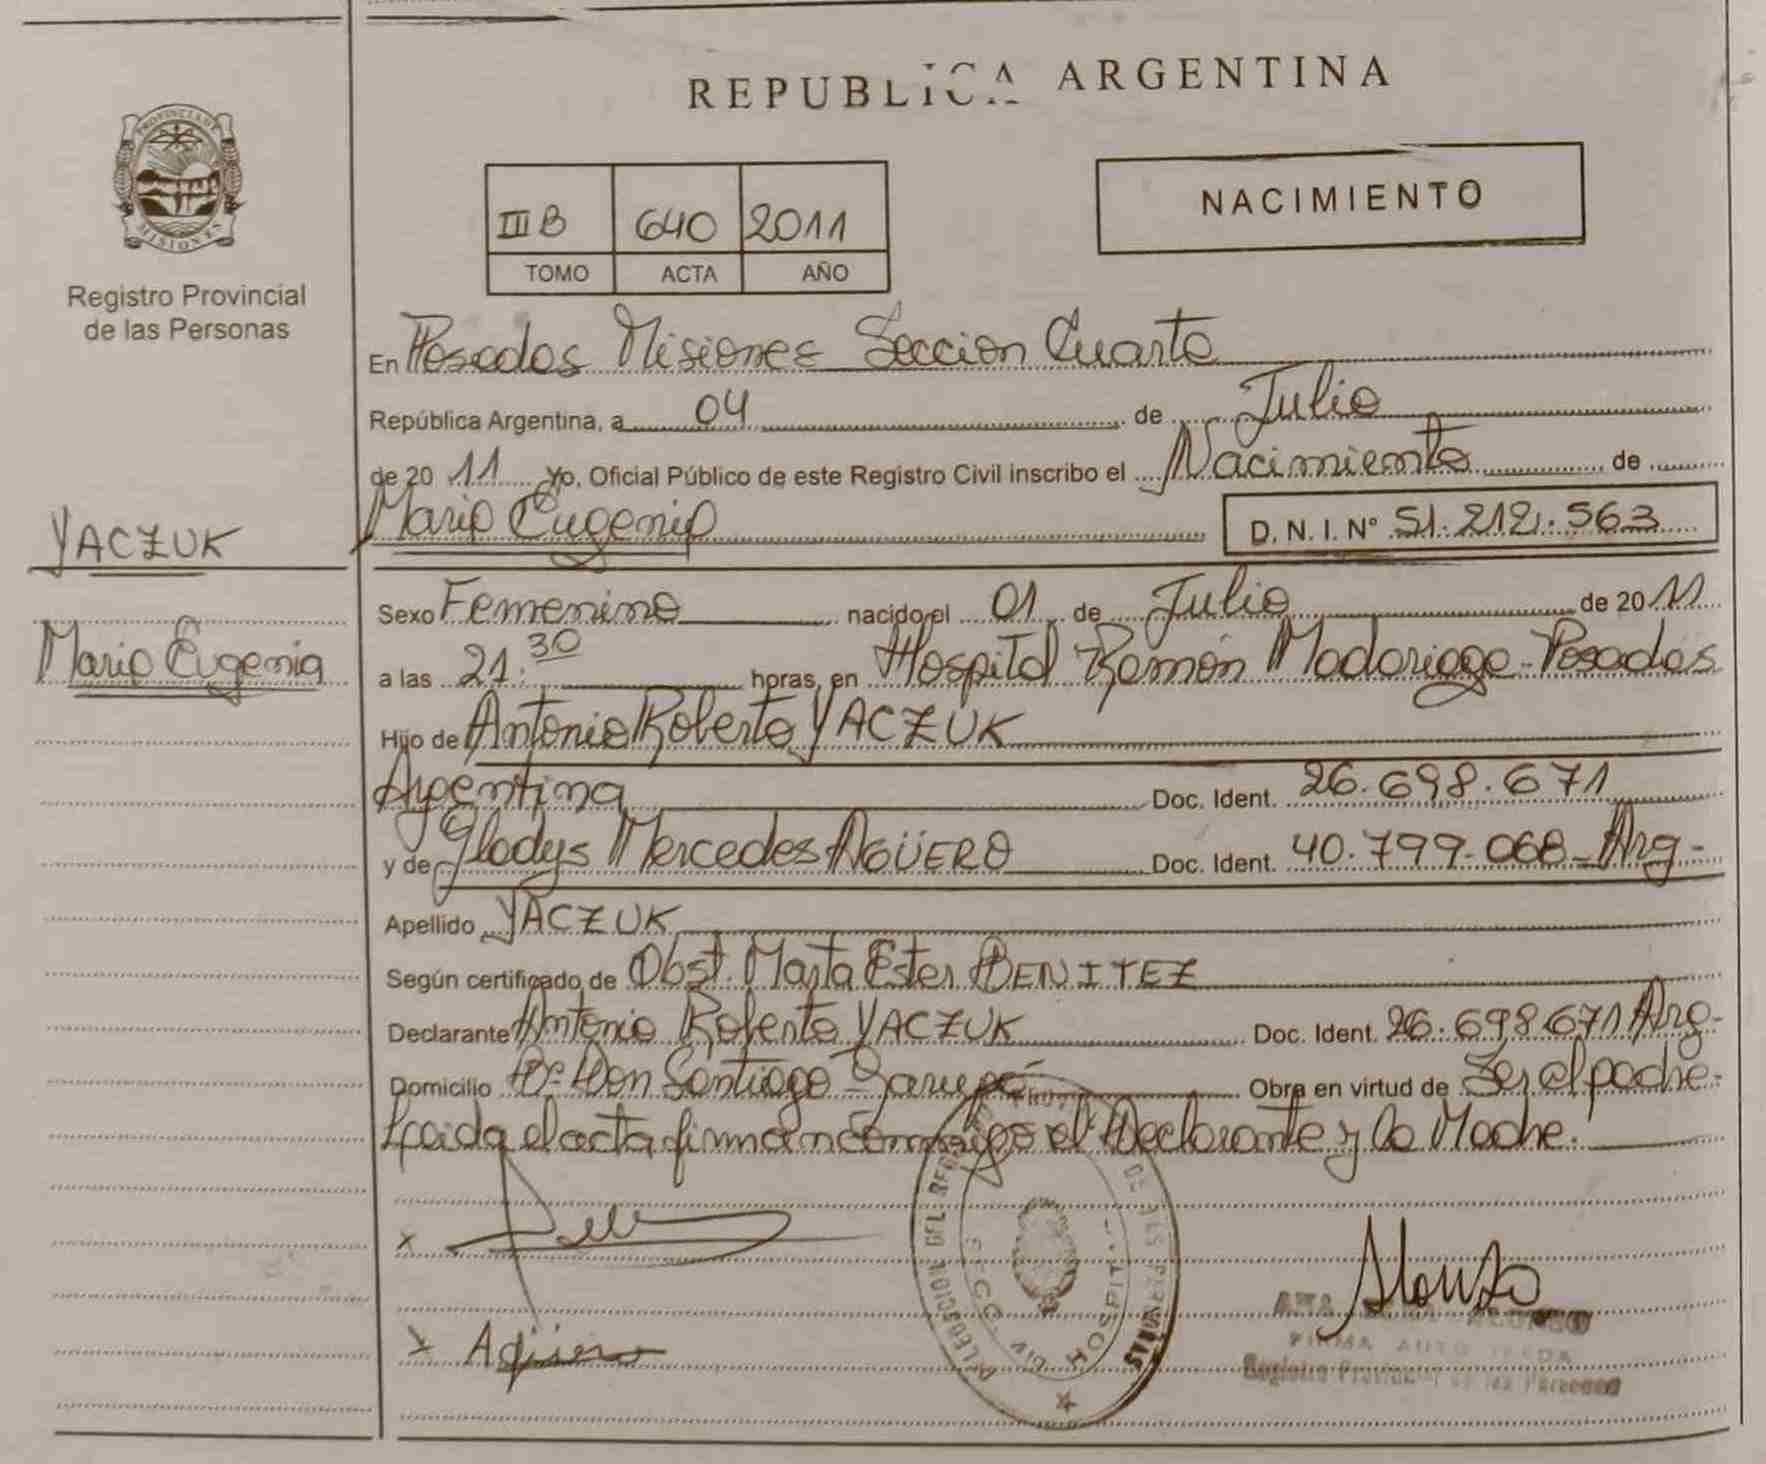 REPUBLICA ARGENTINA
PROVINCIA DE
MISIONES
Registro Provincial
de las Personas
NACIMIENTO
III B 640 2011
TOMO ACTA AÑO
En Posadas Misiones Seccion Cuarta
República Argentina, a 04 de Julio
de 20 11 Yo, Oficial Público de este Registro Civil inscribo el Nacimiento de
YACZUK
Maria Eugenia
Maria Eugenia D. N. I. N° 51.212.563
Sexo Femenino nacido el 01 de Julio de 20 11
a las 21:30 horas, en Hospital Ramón Madariaga - Posadas
Hijo de Antonio Roberto YACZUK
Argentina Doc. Ident. 26.698.671
y de Gladys Mercedes AGÜERO Doc. Ident. 40.799.068 - Arg -
Apellido YACZUK
Según certificado de Obst. Marta Ester BENITEZ
Declarante Antonio Roberto YACZUK Doc. Ident. 26.698.671 Arg -
Domicilio Bº Don Santiago - Garupá Obra en virtud de Ser el padre -
Leida el acta firman conmigo el Declarante y la Madre.
x
x Agüero
Alonzo
FIRMA AUTORIZADA
Registro Provincial de las Personas
DELEGACION DEL REG DE LAS PERSONAS
HOSPITAL